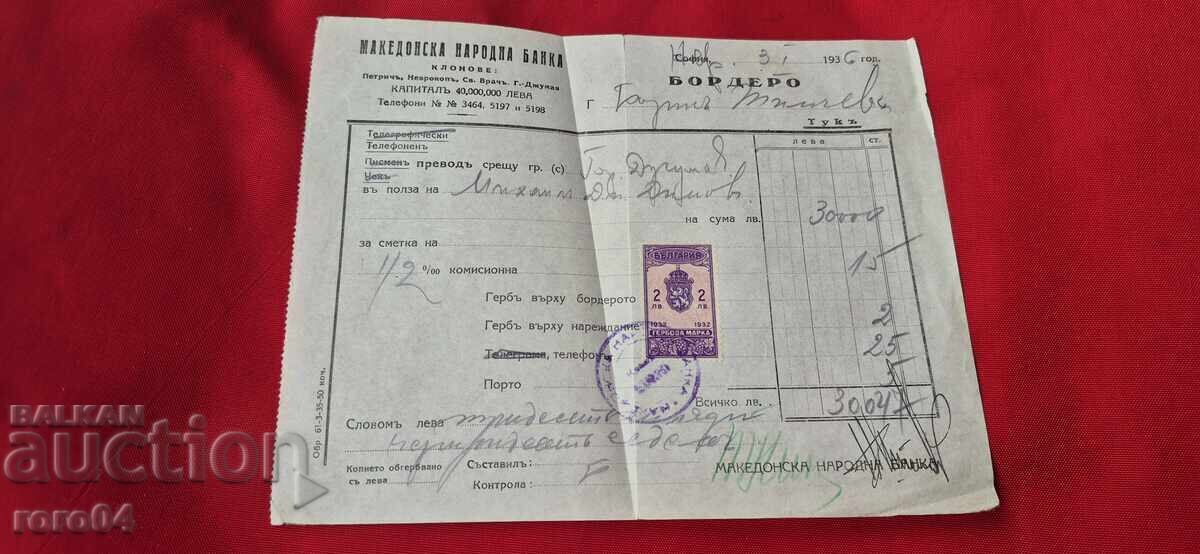 МАКЕДОНСКА НАРОДНА БАНКА
КЛОНОВЕ:
Петричъ, Неврокопъ, Св. Врачъ, Г.-Джумая
КАПИТАЛЪ 40,000,000 ЛЕВА
Телефони № № 3464, 5197 и 5198
София, 3 I 1936 год.
БОРДЕРО
Г
Тукъ
лева ст.
Телеграфически
Телефоненъ
Писменъ преводъ срещу гр. (с) Гор. Джумая
Чекъ
въ полза на Михаил Димовъ
на сума лв. 30000
за сметка на
1/2 0/00 комисионна 15
Гербъ върху бордерото 2
Гербъ върху нареждание
Телеграма, телефонъ 25
Порто 5
Всичко лв. 30047
Словомъ лева тридесеть хиляди
четиридесеть и седемь
Копието обгербвано
съ лева
Съставилъ:
Контрола:
МАКЕДОНСКА НАРОДНА БАНКА
Обр. 61-3-35-50 коч.
БЪЛГАРИЯ
2 2
ЛВ. ЛВ.
1932 1932
ГЕРБОВА МАРКА
BALKAN
auction
roro04